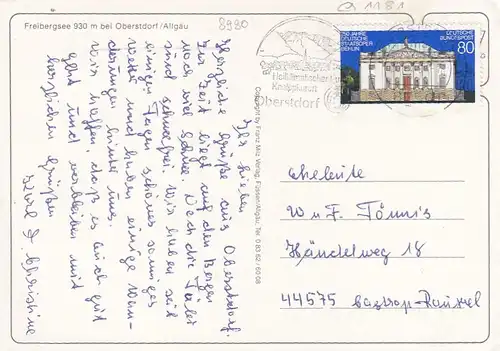 Freibergsee 930 m bei Oberstdorf/Allgäu
8980
a 1181
250 JAHRE
DEUTSCHE
STAATSOPER
BERLIN
DEUTSCHE
BUNDESPOST
80
Heilklimatischer
Kneippkurort
Oberstdorf
Copyright by Franz Milz Verlag, Füssen/Allgäu, Tel. 0 83 62 / 60 08
Ihr Lieben
Herzliche Grüße aus Oberstdorf.
Zur Zeit liegt auf den Bergen
viel Schnee. Doch die Täler
sind schneefrei. Wir haben seit
einigen Tagen schönes sonniges
Wetter und haben einige Wan-
derungen hinter uns.
Wir hoffen, daß es Euch gut
geht und verbleiben mit
herzlichen Grüßen
Christine
Eheleute
W u F. Tönnis
Händelweg 18
44575 Castrop-Rauxel